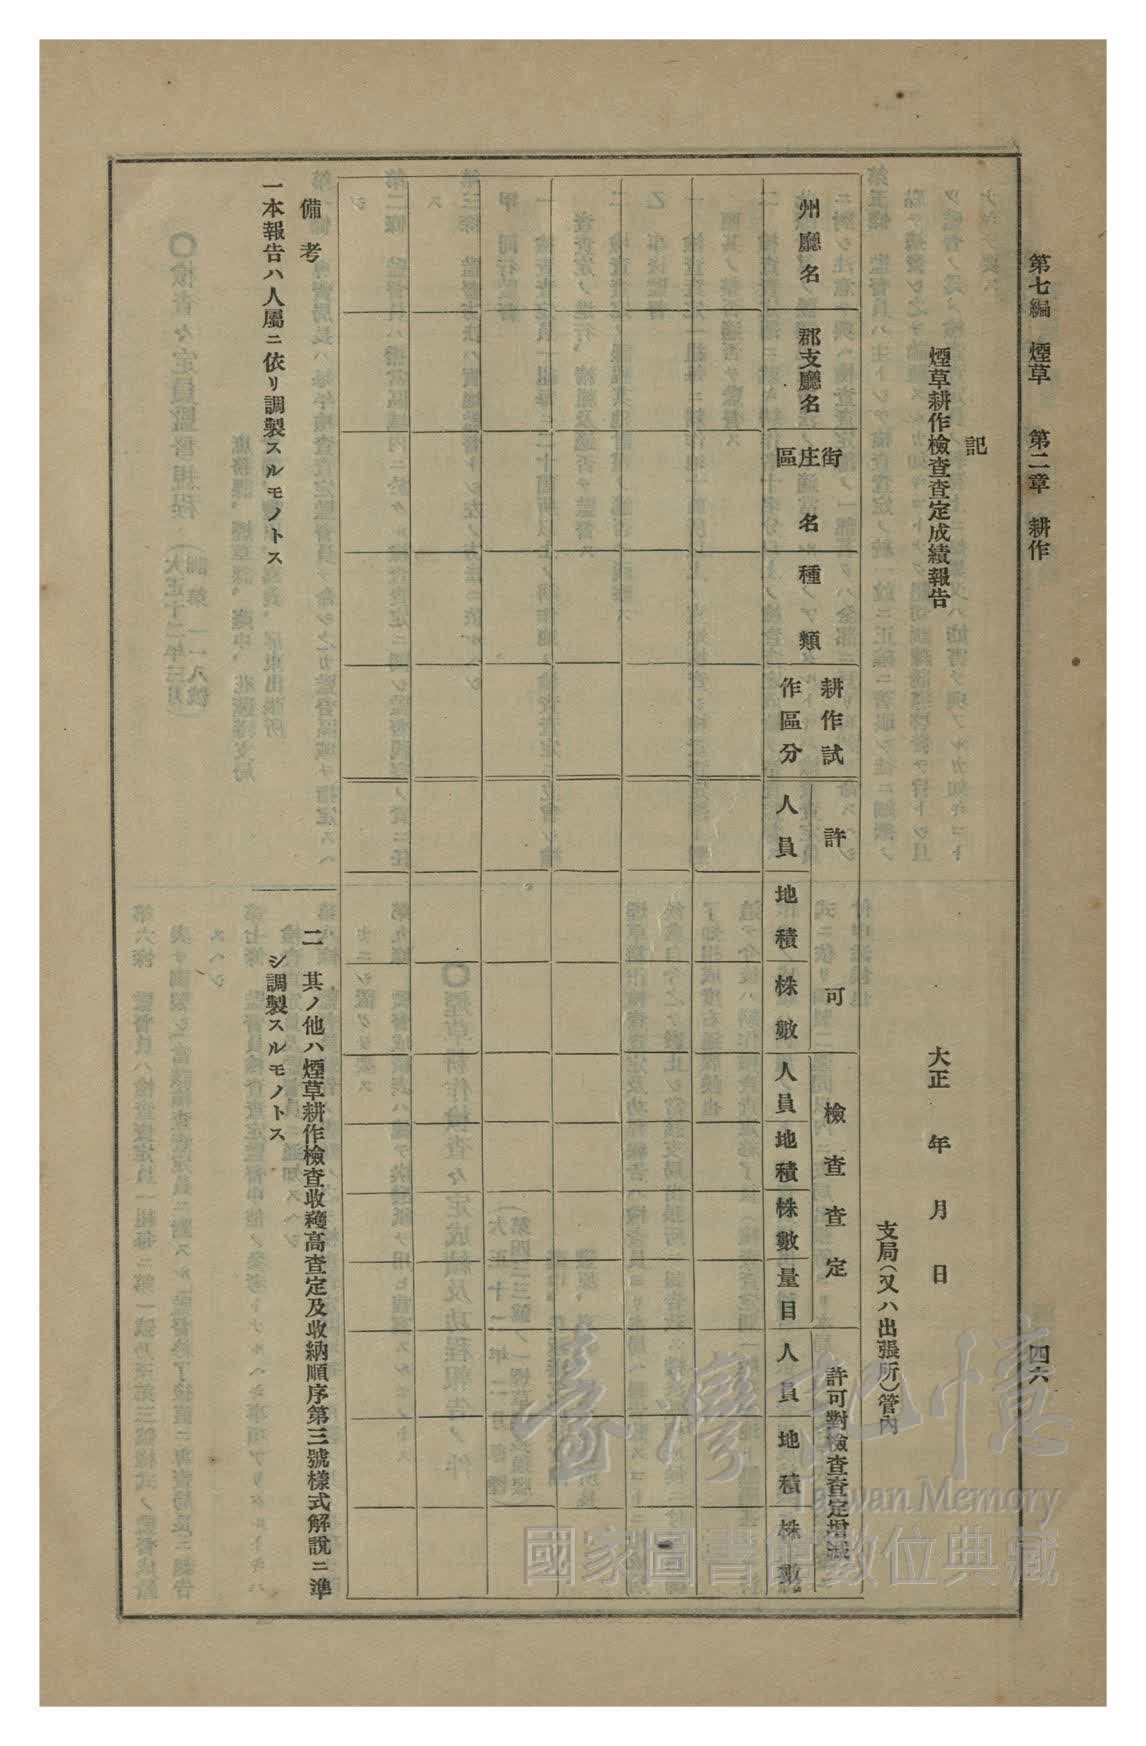 第七編 煙草 第二章 耕作
四六
記
煙草耕作檢查査定成績報告
大正 年 月 日
支局(又ハ出張所)管內
州廳名
郡支廳名
街庄區名
種類
耕作試作區分
許可
人員
地積
株數
檢查査定
人員
地積
株數
量目
許可對檢查査定增減
人員
地積
株數
備考
一本報告ハ人屬ニ依リ調製スルモノトス
二 其ノ他ハ煙草耕作檢查收穫高査定及收納順序第三號樣式解說ニ準
シ調製スルモノトス
臺灣記憶
Taiwan Memory
國家圖書館數位典藏